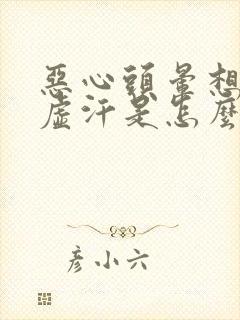 惡心頭暈想
虛汗是怎麼
彦小六